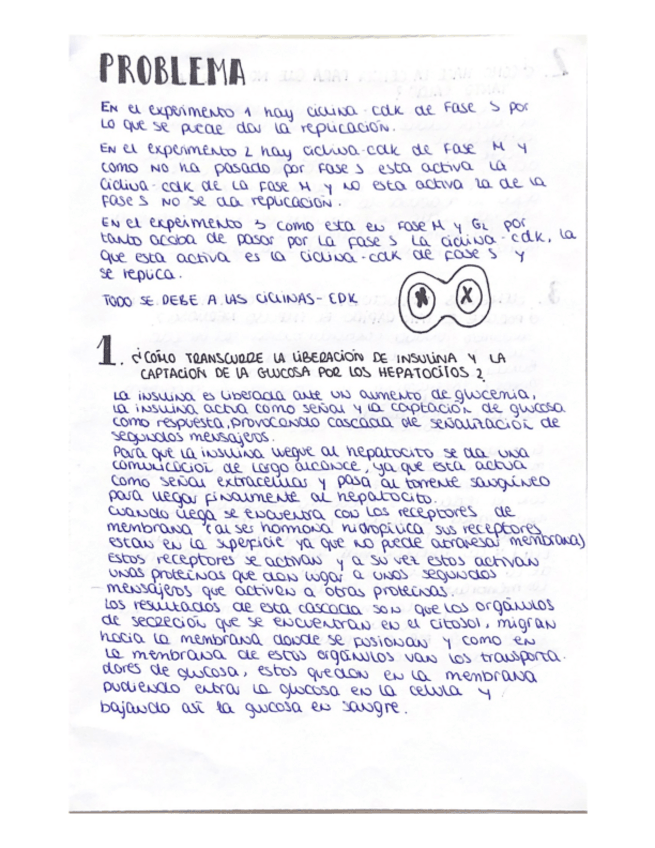 PROBLEMA
En el experimento 1 hay ciclina-cdk de fase S por
lo que se puede dar la replicación.
En el experimento 2 hay ciclina-cdk de fase M y
como no ha pasado por fase S esta activa la
ciclina-cdk de la fase M y no esta activa la de la
fase S no se da replicación.
En el experimento 3 como esta en fase M y G2 por
tanto acaba de pasar por la fase S la ciclina-cdk, la
que esta activa es la ciclina-cdk de fase S y
se replica.
TODO SE DEBE A LAS CICLINAS-CDK
1. ¿CÓMO TRANSCURRE LA LIBERACIÓN DE INSULINA Y LA
CAPTACIÓN DE LA GLUCOSA POR LOS HEPATOCITOS?
La insulina es liberada ante un aumento de glucemia,
la insulina actua como señal y la captación de glucosa
como respuesta, provocando cascada de señalización de
segundos mensajeros.
Para que la insulina llegue al hepatocito se da una
comunicación de largo alcance, ya que esta actua
como señal extracelular y pasa al torrente sanguíneo
para llegar finalmente al hepatocito.
Cuando llega se encuentra con los receptores de
membrana (al ser hormona hidrofílica sus receptores
estan en la superficie ya que no puede atravesar membrana)
estos receptores se activan y a su vez estos activan
unas proteínas que dan lugar a unos segundos
mensajeros que activen a otras proteínas.
Los resultados de esta cascada son que los orgánulos
de secreción que se encuentran en el citosol, migran
hacia la membrana donde se fusionan y como en
la membrana de estos orgánulos van los transporta-
dores de glucosa, estos quedan en la membrana
pudiendo entrar la glucosa en la celula y
bajando así la glucosa en sangre.